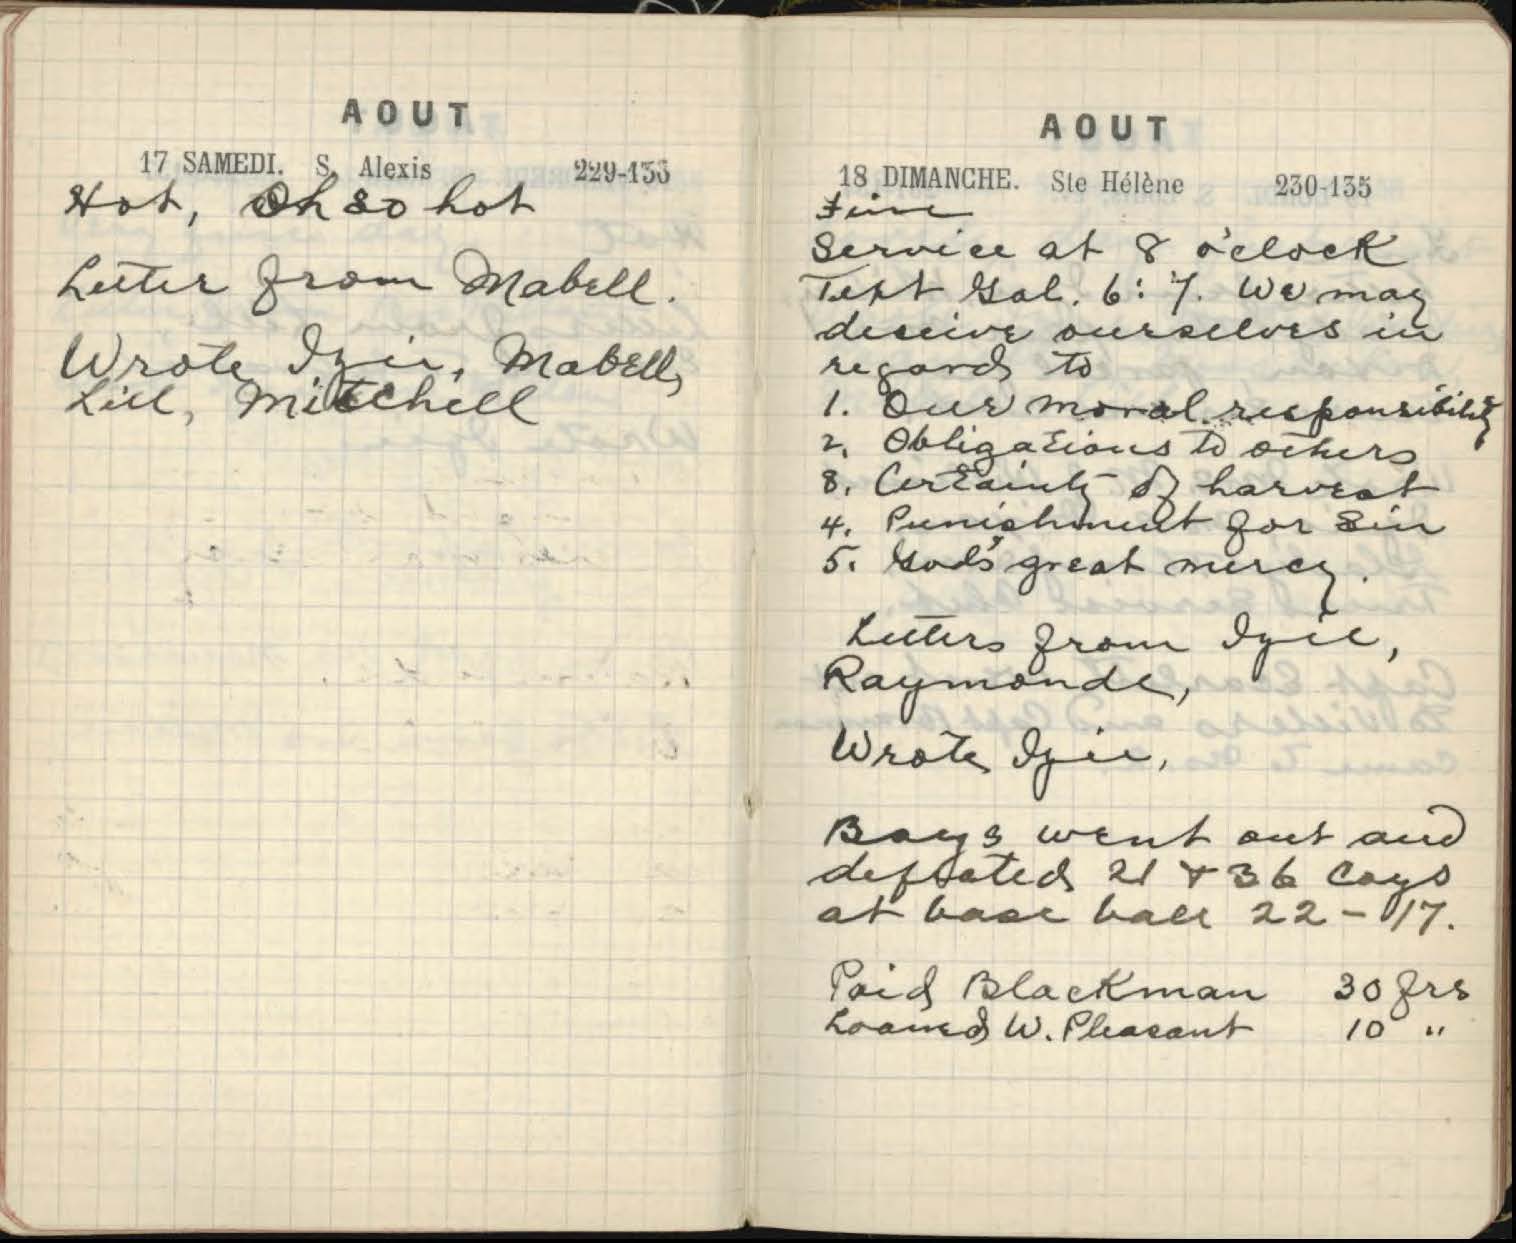 AOUT
17 SAMEDI. S. Alexis 229-136
Hot, Oh so hot
Letter from Mabell.
Wrote Izie, Mabell,
Lill, Mitchell
AOUT
18 DIMANCHE. Ste Hélène 230-135
Fine
Service at 8 o'clock
Text Gal. 6:7. We may
deceive ourselves in
regard to
1. Our moral responsibility
2. Obligations to others
3. Certainty of harvest
4. Punishment for Sin
5. God's great mercy.
Letters from Izie,
Raymonde,
Wrote Izie,
Boys went out and
defeated 21 & 36 Coys
at base ball 22-17.
Paid Blackman 30 frs
Loaned W. Pleasant 10 "